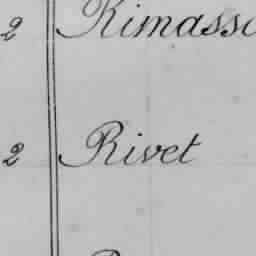 2 Rimasso
2 Rivet